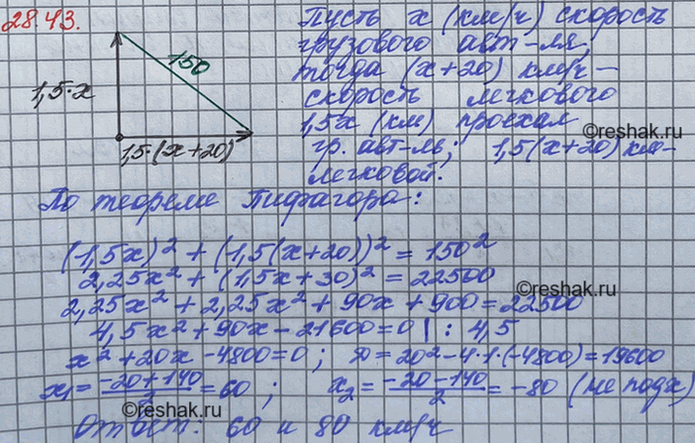 28.43.
Пусть x (км/ч) скорость
грузового авт-ля,
тогда (x+20) км/ч –
скорость легкового
1,5x (км) проехал
гр. авт-ль; 1,5(x+20) км-
легковой.
150
1,5·x
1,5·(x+20)
По теореме Пифагора:
(1,5x)² + (1,5(x+20))² = 150²
2,25x² + (1,5x+30)² = 22500
2,25x² + 2,25x² + 90x + 900 = 22500
4,5x² + 90x - 21600 = 0 | : 4,5
x² + 20x - 4800 = 0 ; Д = 20² - 4·1·(-4800) = 19600
x₁ = (-20+140)/2 = 60 ; x₂ = (-20-140)/2 = -80 (не подх)
Ответ: 60 и 80 км/ч
©reshak.ru
©reshak.ru
©reshak.ru